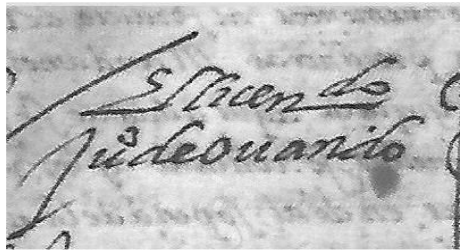 El licen do
Juº de ouando